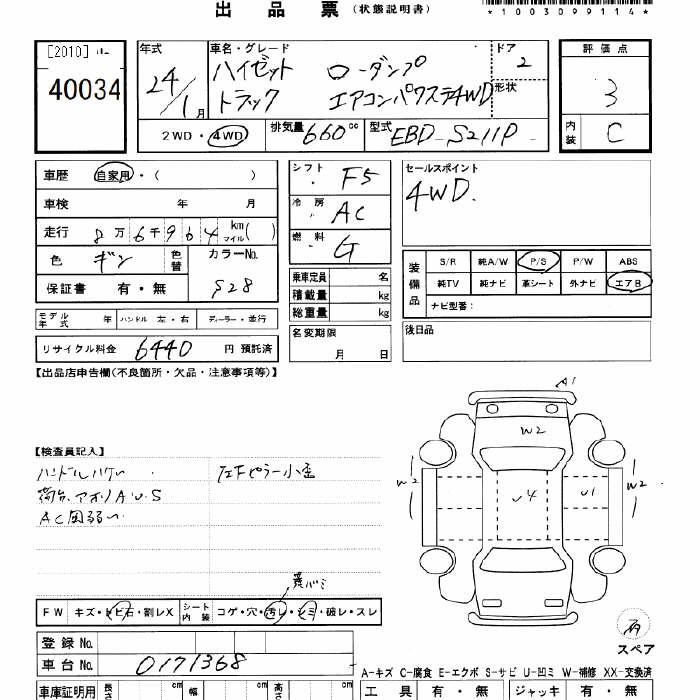 出品票 (状態説明書)
*1003099114*
[2010]
40034
年式
24/1月
車名・グレード
ハイゼット ローダンプ
トラック エアコンパワステ4WD
ドア
2
形状
評価点
3
内装
C
2WD・4WD
排気量 660cc
型式 EBD-S211P
車歴 自家用・( )
車検 年 月
走行 8万6千964 km マイル( )
色 ギン 色替
カラーNo. S28
保証書 有・無
シフト F5
冷房 AC
燃料 G
乗車定員 名
積載量 kg
総重量 kg
名変期限
月 日
セールスポイント
4WD.
装備品
S/R 純A/W P/S P/W ABS
純TV 純ナビ 革シート 外ナビ エアB
ナビ型番:
後日品
モデル年式 年 ハンドル 左・右 ディーラー・並行
リサイクル料金 6440 円 預託済
【出品店申告欄(不良箇所・欠品・注意事項等)】
【検査員記入】
ハンドルハゲ 左Fピラー小歪
荷台、アオリA U S
AC風弱い
A1
W2
W2
U4
U1
W2
FW キズ・トビ石・割レX
シート内装 コゲ・穴・汚レ・シミ・破レ・スレ
スペア
登録No.
車台No. 0171368
A-キズ C-腐食 E-エクボ S-サビ U-凹ミ W-補修 XX-交換済
車庫証明用 長さ cm 幅 cm 高さ cm
工具 有・無 ジャッキ 有・無